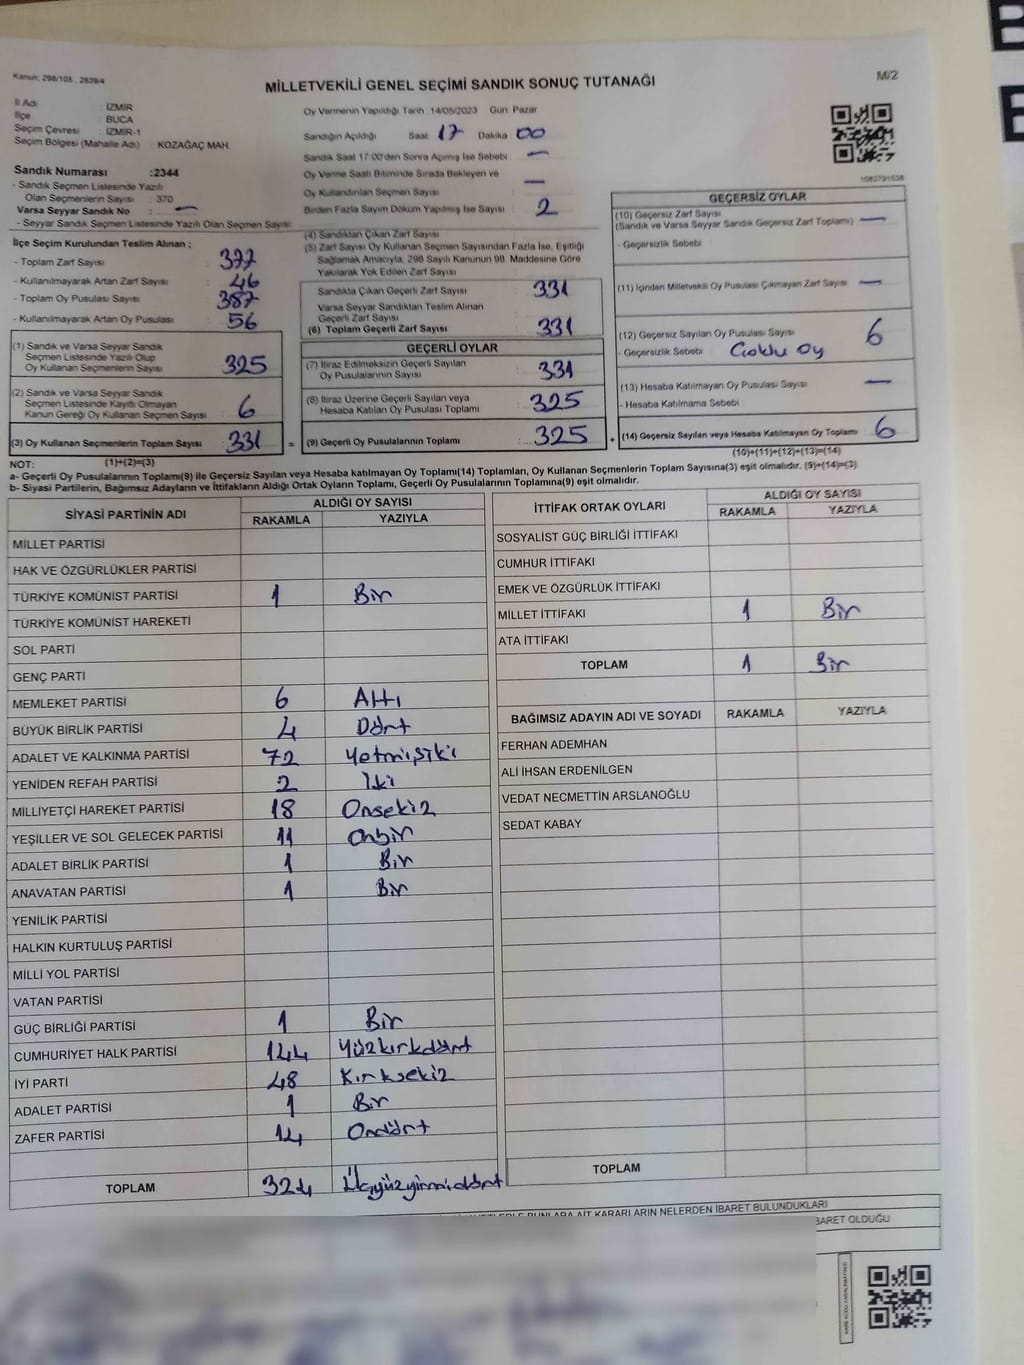 Kanun: 298/105 , 2839/4
MİLLETVEKİLİ GENEL SEÇİMİ SANDIK SONUÇ TUTANAĞI
M/2
İl Adı : İZMİR
İlçe BUCA
Seçim Çevresi : İZMİR-1
Seçim Bölgesi (Mahalle Adı) : KOZAĞAÇ MAH.
Sandık Numarası :2344
- Sandık Seçmen Listesinde Yazılı
Olan Seçmenlerin Sayısı : 370
Varsa Seyyar Sandık No : —
- Seyyar Sandık Seçmen Listesinde Yazılı Olan Seçmen Sayısı
Oy Vermenin Yapıldığı Tarih :14/05/2023 Gün: Pazar
Sandığın Açıldığı Saat: 17 Dakika 00
Sandık Saat 17:00'den Sonra Açılmış İse Sebebi : —
Oy Verme Saati Bitiminde Sırada Bekleyen ve
Oy Kullandırılan Seçmen Sayısı : —
Birden Fazla Sayım Döküm Yapılmış İse Sayısı : 2
1083791038
İlçe Seçim Kurulundan Teslim Alınan ;
- Toplam Zarf Sayısı : 377
- Kullanılmayarak Artan Zarf Sayısı : 46
- Toplam Oy Pusulası Sayısı : 387
- Kullanılmayarak Artan Oy Pusulası : 56
(1) Sandık ve Varsa Seyyar Sandık
Seçmen Listesinde Yazılı Olup
Oy Kullanan Seçmenlerin Sayısı : 325
(2) Sandık ve Varsa Seyyar Sandık
Seçmen Listesinde Kayıtlı Olmayan
Kanun Gereği Oy Kullanan Seçmen Sayısı : 6
(3) Oy Kullanan Seçmenlerin Toplam Sayısı : 331
(1)+(2)=(3)
(4) Sandıktan Çıkan Zarf Sayısı
(5) Zarf Sayısı Oy Kullanan Seçmen Sayısından Fazla İse, Eşitliği
Sağlamak Amacıyla, 298 Sayılı Kanunun 98. Maddesine Göre
Yakılarak Yok Edilen Zarf Sayısı
Sandıkta Çıkan Geçerli Zarf Sayısı : 331
Varsa Seyyar Sandıktan Teslim Alınan
Geçerli Zarf Sayısı
(6) Toplam Geçerli Zarf Sayısı : 331
GEÇERLİ OYLAR
(7) İtiraz Edilmeksizin Geçerli Sayılan
Oy Pusulalarının Sayısı : 331
(8) İtiraz Üzerine Geçerli Sayılan veya
Hesaba Katılan Oy Pusulası Toplamı : 325
= (9) Geçerli Oy Pusulalarının Toplamı : 325
GEÇERSİZ OYLAR
(10) Geçersiz Zarf Sayısı
(Sandık ve Varsa Seyyar Sandık Geçersiz Zarf Toplamı) : —
- Geçersizlik Sebebi
(11) İçinden Milletvekili Oy Pusulası Çıkmayan Zarf Sayısı : —
(12) Geçersiz Sayılan Oy Pusulası Sayısı : 6
- Geçersizlik Sebebi : Çoklu Oy
(13) Hesaba Katılmayan Oy Pusulası Sayısı : —
- Hesaba Katılmama Sebebi :
+ (14) Geçersiz Sayılan veya Hesaba Katılmayan Oy Toplamı : 6
(10)+(11)+(12)+(13)=(14)
NOT:
a- Geçerli Oy Pusulalarının Toplamı(9) ile Geçersiz Sayılan veya Hesaba katılmayan Oy Toplamı(14) Toplamları, Oy Kullanan Seçmenlerin Toplam Sayısına(3) eşit olmalıdır. (9)+(14)=(3)
b- Siyasi Partilerin, Bağımsız Adayların ve İttifakların Aldığı Ortak Oyların Toplamı, Geçerli Oy Pusulalarının Toplamına(9) eşit olmalıdır.
SİYASİ PARTİNİN ADI ALDIĞI OY SAYISI
RAKAMLA YAZIYLA
MİLLET PARTİSİ
HAK VE ÖZGÜRLÜKLER PARTİSİ
TÜRKİYE KOMÜNİST PARTİSİ 1 Bir
TÜRKİYE KOMÜNİST HAREKETİ
SOL PARTİ
GENÇ PARTİ
MEMLEKET PARTİSİ 6 Altı
BÜYÜK BİRLİK PARTİSİ 4 Dört
ADALET VE KALKINMA PARTİSİ 72 Yetmişiki
YENİDEN REFAH PARTİSİ 2 İki
MİLLİYETÇİ HAREKET PARTİSİ 18 Onsekiz
YEŞİLLER VE SOL GELECEK PARTİSİ 11 Onbir
ADALET BİRLİK PARTİSİ 1 Bir
ANAVATAN PARTİSİ 1 Bir
YENİLİK PARTİSİ
HALKIN KURTULUŞ PARTİSİ
MİLLİ YOL PARTİSİ
VATAN PARTİSİ
GÜÇ BİRLİĞİ PARTİSİ 1 Bir
CUMHURİYET HALK PARTİSİ 144 Yüzkırkdört
İYİ PARTİ 48 Kırksekiz
ADALET PARTİSİ 1 Bir
ZAFER PARTİSİ 14 Ondört
TOPLAM 324 Üçyüzyirmidört
İTTİFAK ORTAK OYLARI ALDIĞI OY SAYISI
RAKAMLA YAZIYLA
SOSYALİST GÜÇ BİRLİĞİ İTTİFAKI
CUMHUR İTTİFAKI
EMEK VE ÖZGÜRLÜK İTTİFAKI
MİLLET İTTİFAKI 1 Bir
ATA İTTİFAKI
TOPLAM 1 Bir
BAĞIMSIZ ADAYIN ADI VE SOYADI RAKAMLA YAZIYLA
FERHAN ADEMHAN
ALİ İHSAN ERDENİLGEN
VEDAT NECMETTİN ARSLANOĞLU
SEDAT KABAY
TOPLAM
BUNLARA AİT KARARLARIN NELERDEN İBARET BULUNDUKLARI
BARET OLDUĞU